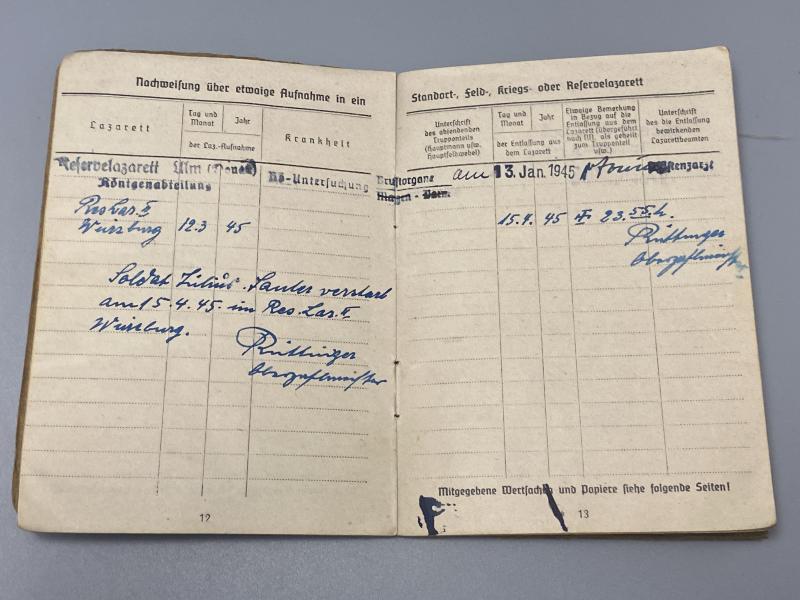 Nachweisung über etwaige Aufnahme in ein
Lazarett
Tag und
Monat
Jahr
der Laz.-Aufnahme
Krankheit
Reservelazarett Ulm (Donau)
Röntgenabteilung
Rö-Untersuchung
Res. Laz. II
Würzburg 12.3 45
Soldat Julius Sauter verstarb
am 15.4.45 im Res. Laz. II
Würzburg.
Rüttinger
Oberzahlmeister
12
Standort-, Feld-, Kriegs- oder Reservelazarett
Unterschrift
des absendenden
Truppenteils
(Hauptmann usw.
Hauptfeldwebel)
Tag und
Monat
Jahr
der Entlassung aus
dem Lazarett
Etwaige Bemerkung
in Bezug auf die
Entlassung aus dem
Lazarett (übergeführt
nach /////, als geheilt
zum Truppenteil
usw.)
Unterschrift
des die Entlassung
bewirkenden
Lazarettbeamten
Brustorgane am 13. Jan. 1945
Magen - Darm
15.4. 45 23.55 h.
Rüttinger
Oberzahlmeister
Mitgegebene Wertsachen und Papiere siehe folgende Seiten!
13